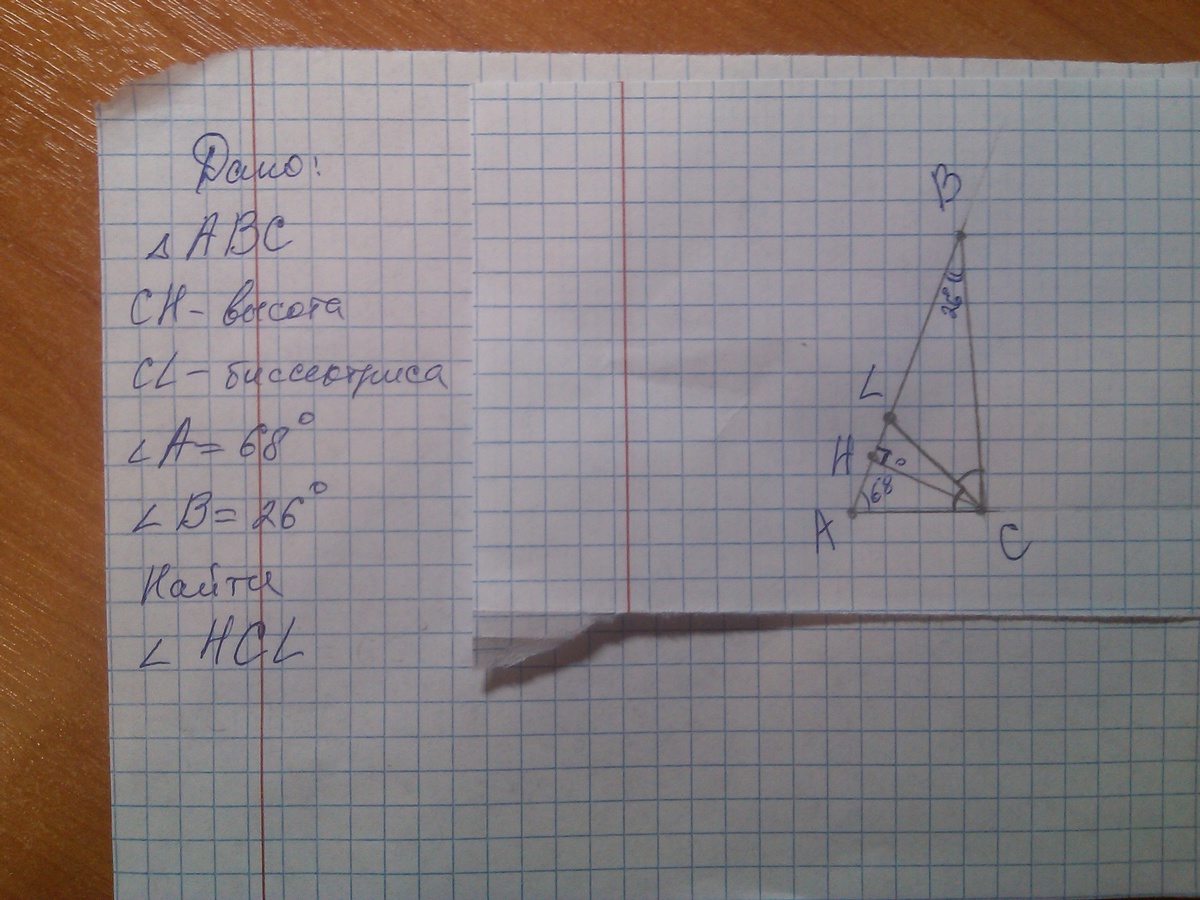 Дано:
△ABC
CH - высота
CL - биссектриса
∠A = 68°
∠B = 26°
Найти
∠ HCL
B
26°
L
H
68
A
C